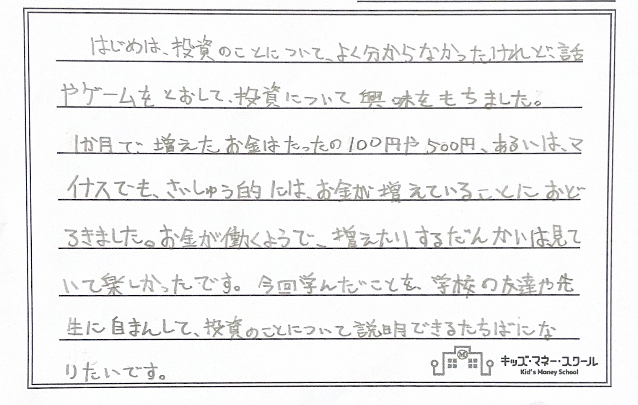 はじめは、投資のことについて、よく分からなかったけれど、話
やゲームをとおして、投資について興味をもちました。
1か月で、増えたお金はたったの100円や500円、あるいは、マ
イナスでも、さいしゅう的には、お金が増えていることにおど
ろきました。お金が働くようで、増えたりするだんかいは見て
いて楽しかったです。今回学んだことを、学校の友達や先
生に自まんして、投資のことについて説明できるたちばにな
りたいです。
キッズ・マネー・スクール
Kid's Money School